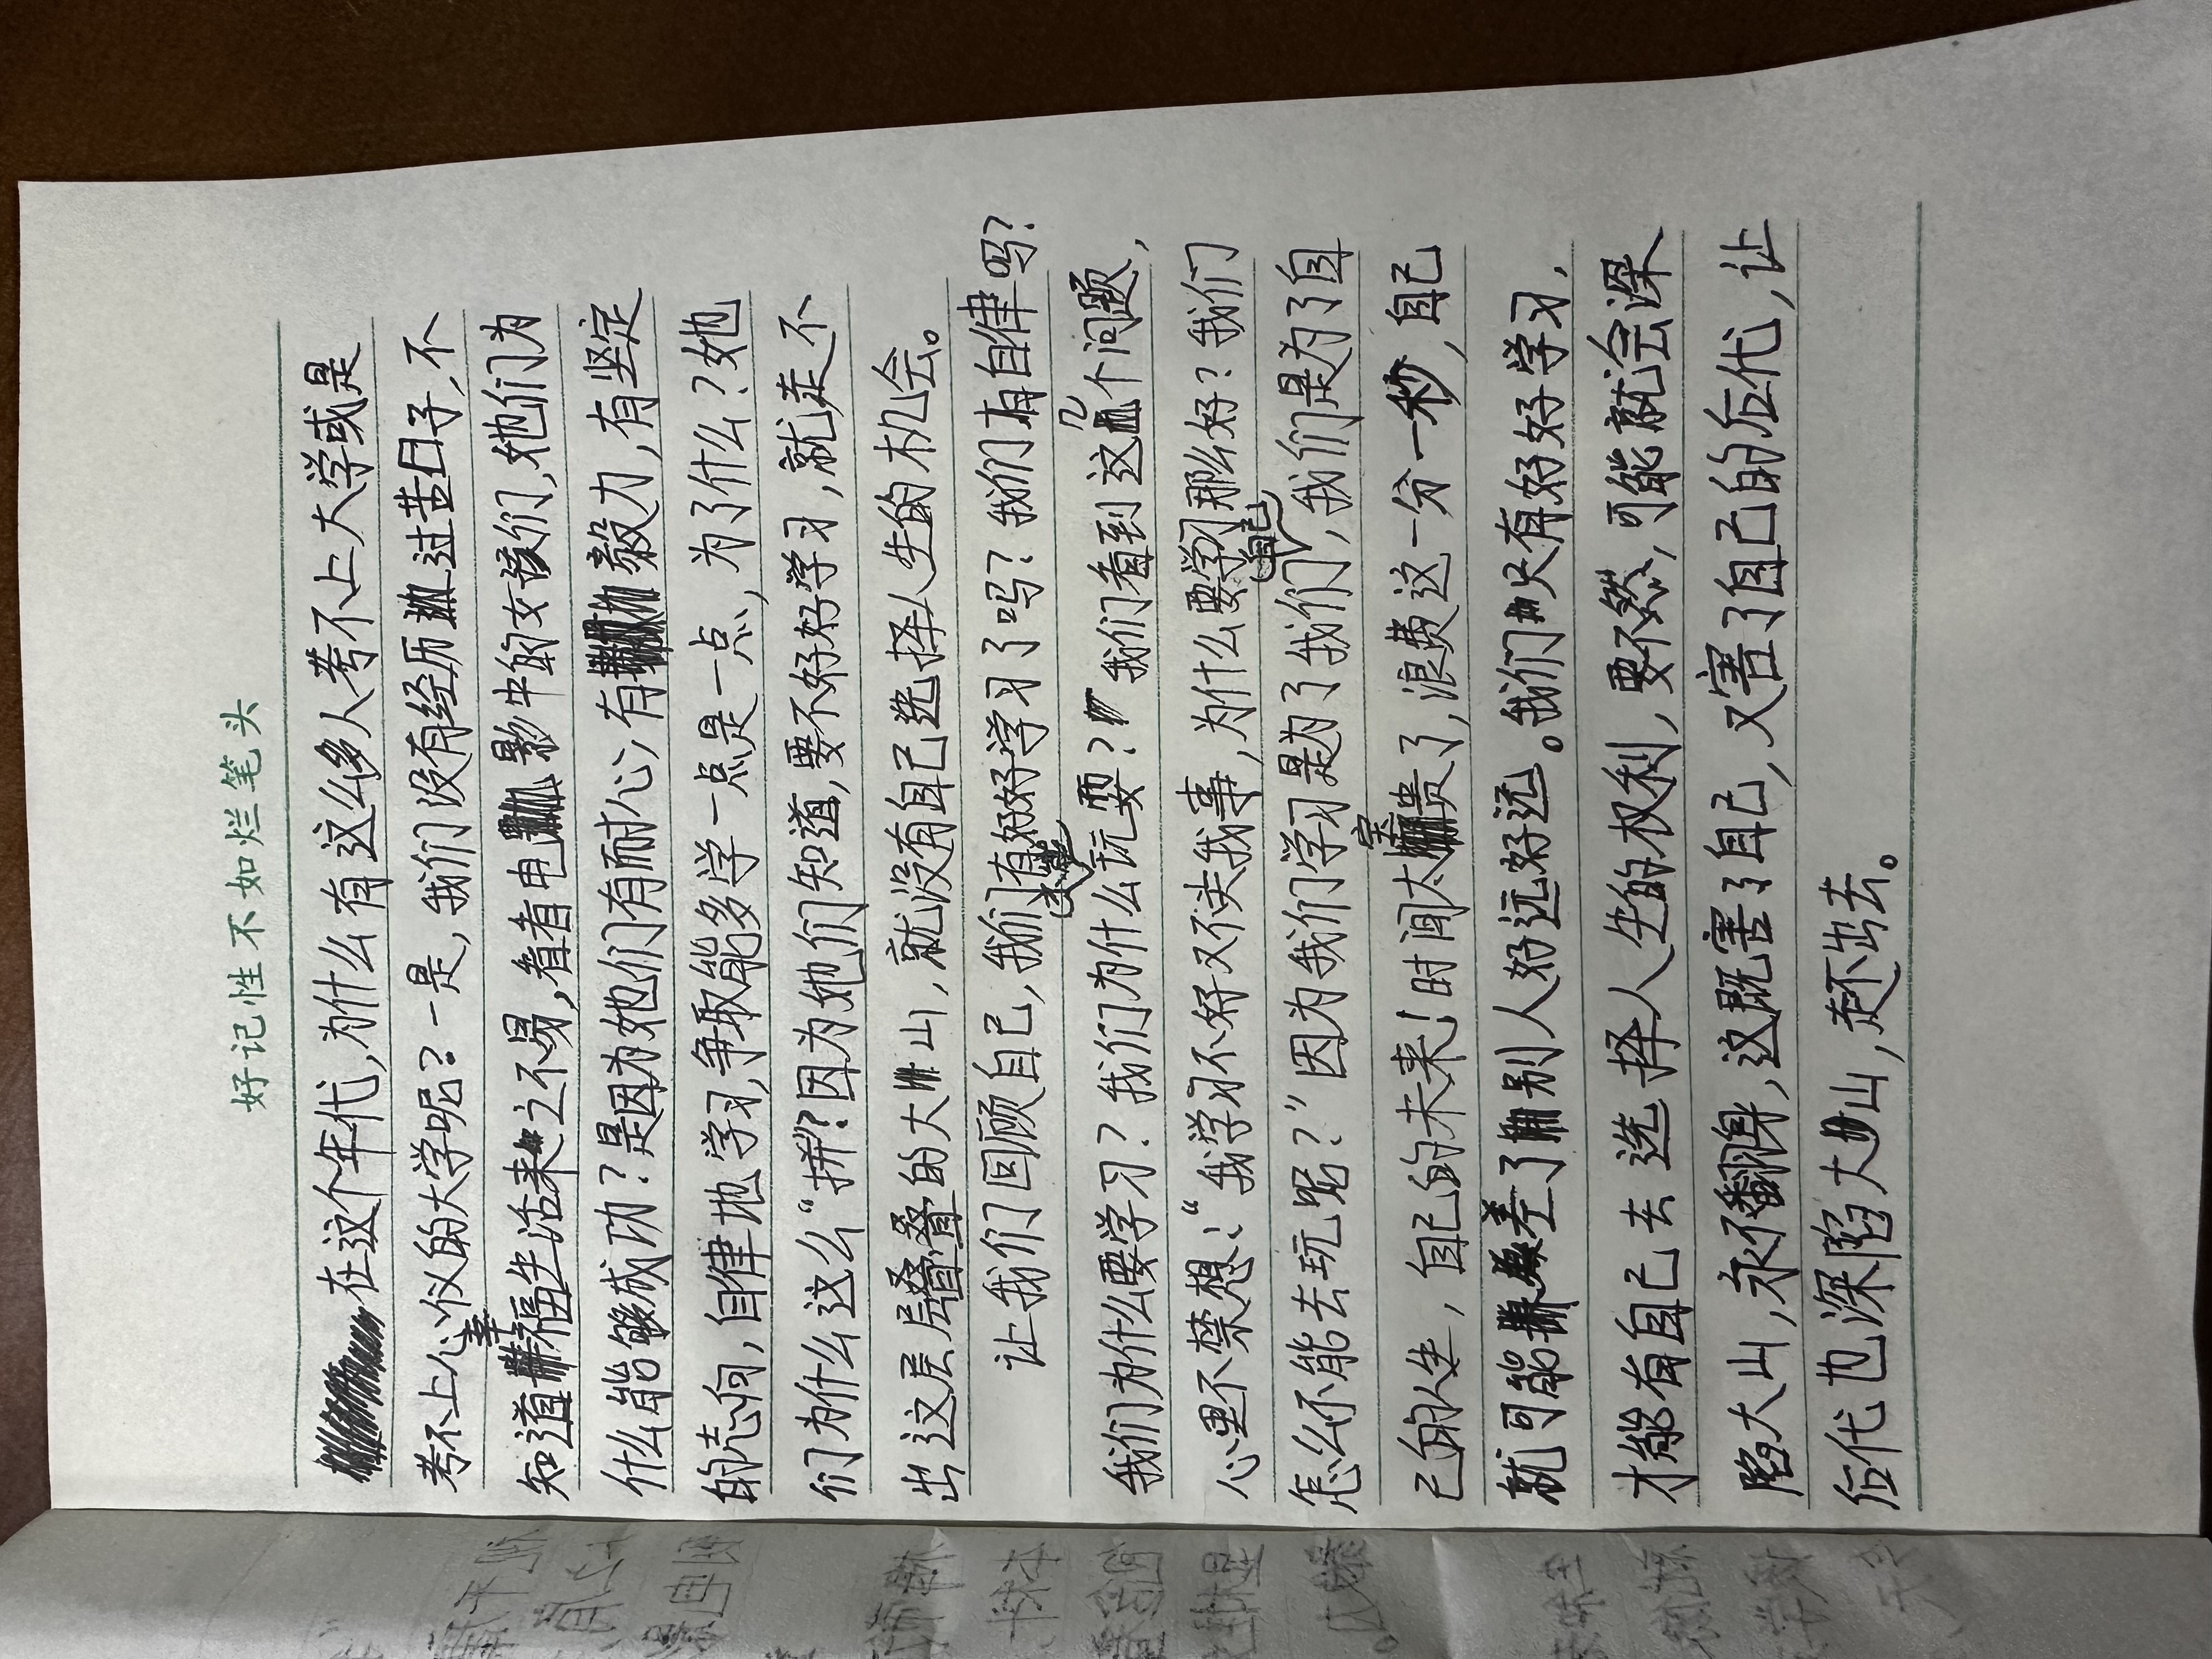 好记性不如烂笔头
在这个年代,为什么有这么多人考不上大学或是
考不上心仪的大学呢?一是,我们没有经历过苦日子,不
知道幸福生活来之不易,看着电影中的女孩们,她们为
什么能够成功?是因为她们有耐心,有毅力,有坚定
的志向,自律地学习,争取能多学一点是一点,为了什么?她
们为什么这么“拼”?因为她们知道,要不好好学习,就走不
出这层层叠叠的大山,就没有自己选择人生的机会。
让我们回顾自己,我们有好好学习了吗?我们有自律吗?
我们为什么要学习?我们为什么玩耍?我们看到这几个问题,
心里不禁想:“我学习不好又不关我事,为什么要学习那么好?我们
怎么不能去玩呢?”因为我们学习是为了我们,我们是为了自
己的人生,自己的未来!时间太宝贵了,浪费这一分一秒,自己
就可能差了别人好远好远。我们只有好好学习,
才能有自己去选择人生的权利,要不然,可能就会深
陷大山,永不翻身,这既害了自己,又害了自己的后代,让
后代也深陷大山,走不出去。